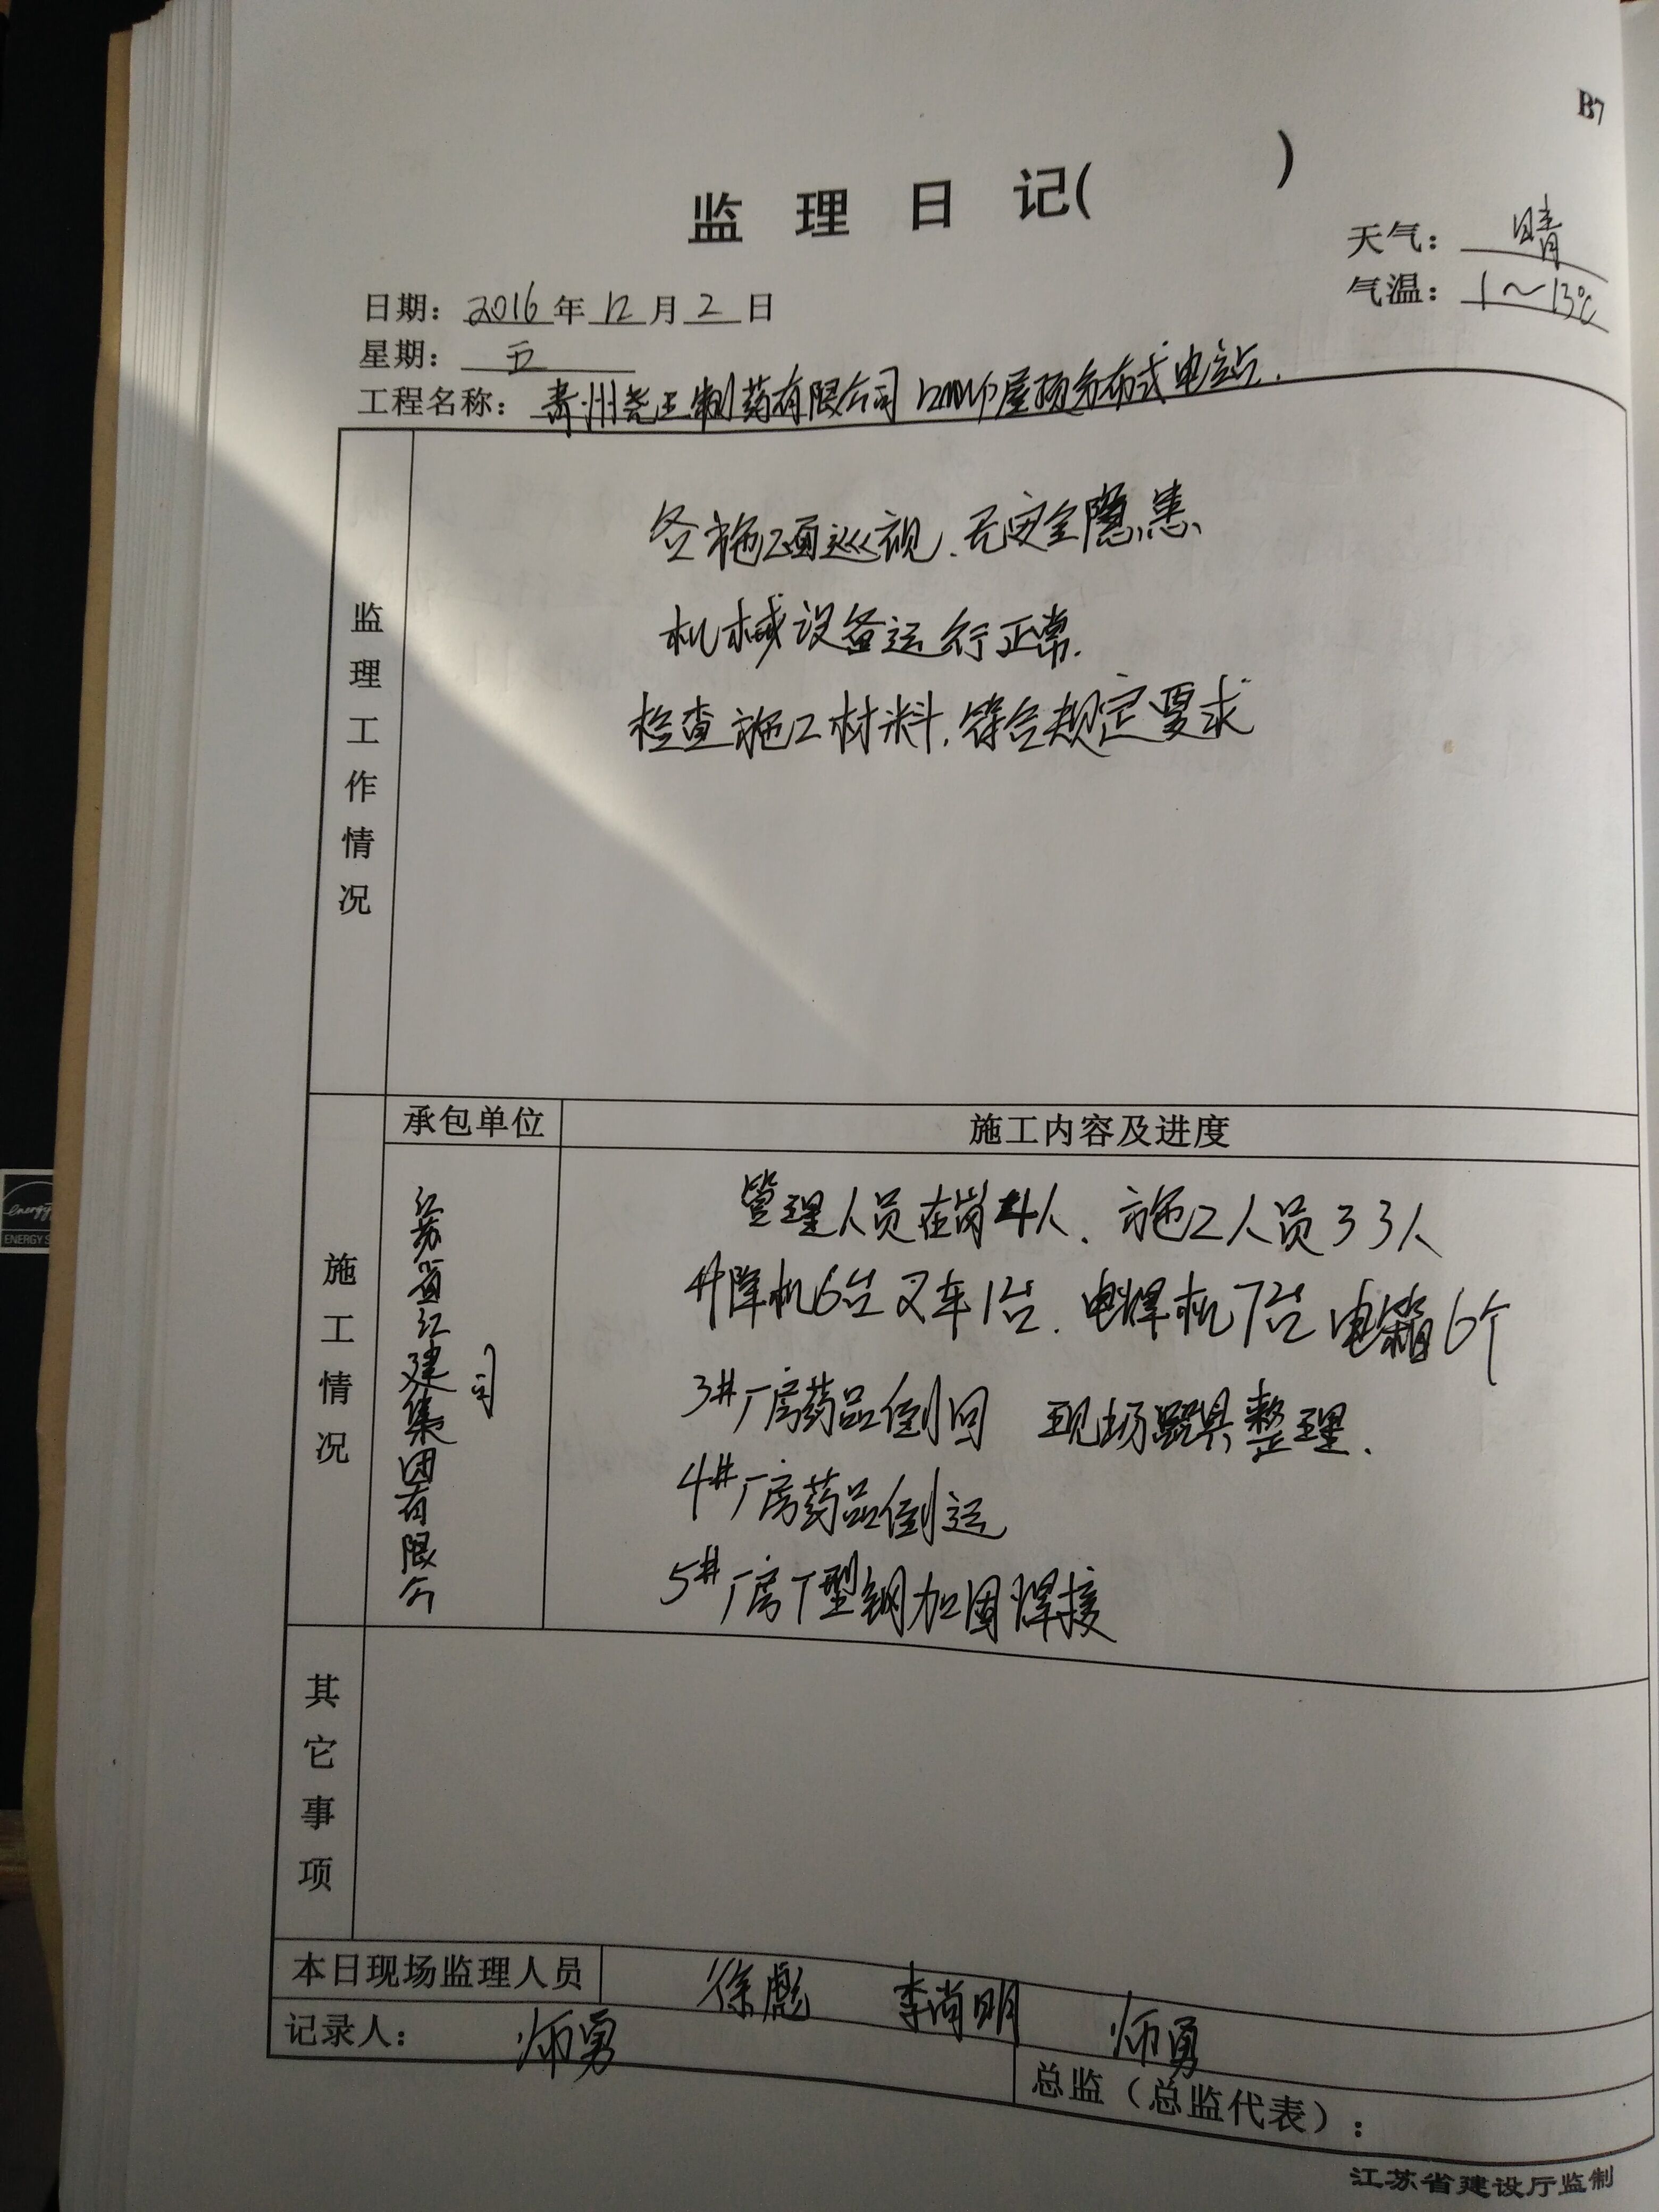 B7
监 理 日 记( )
天气: 晴
气温: 1～13℃
日期: 2016 年 12 月 2 日
星期: 五
工程名称: 青州尧王制药有限公司 12MW屋顶分布式电站.
监理工作情况
各施工面巡视.无安全隐患
机械设备运行正常.
检查施工材料.符合规定要求
施工情况
承包单位
施工内容及进度
江苏省江建集团有限公司
管理人员在岗4人. 施工人员33人
升降机6台 叉车1台. 电焊机7台 电箱6个
3#厂房药品倒回 现场器具整理.
4#厂房药品倒运
5#厂房T型钢加固焊接
其它事项
本日现场监理人员 徐彪 李尚明 师勇
记录人: 师勇
总监（总监代表）:
江苏省建设厅监制
energy
ENERGY S